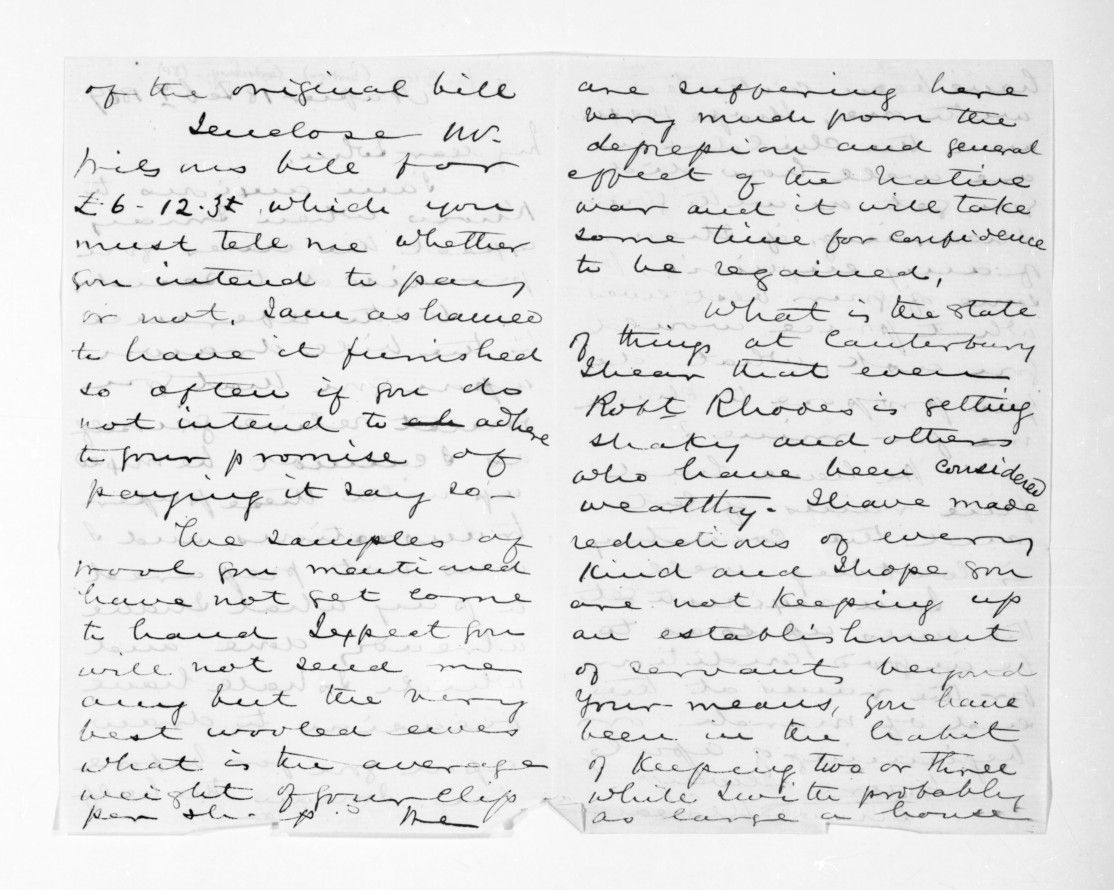 of the original bill
I enclose Mr.
Wilsons bill for
£6-12.3d which you
must tell me whether
you intend to pay
or not. I am ashamed
to have it furnished
so often if you do
not intend to adhere
to your promise of
paying it say so -
The samples of
wool you mentioned
have not yet come
to hand I expect you
will not send me
any but the very
best wooled ewes
what is the average
weight of your clip
per sh. We
are suffering here
very much from the
depression and general
effect of the Native
war and it will take
some time for confidence
to be regained,
What is the state
of things at Canterbury
I hear that even
Robt Rhodes is getting
shaky and others
who have been considered
wealthy. I have made
reductions of every
kind and I hope you
are not keeping up
an establishment
of servants beyond
your means, you have
been in the habit
of keeping two or three
while I with probably
as large a house